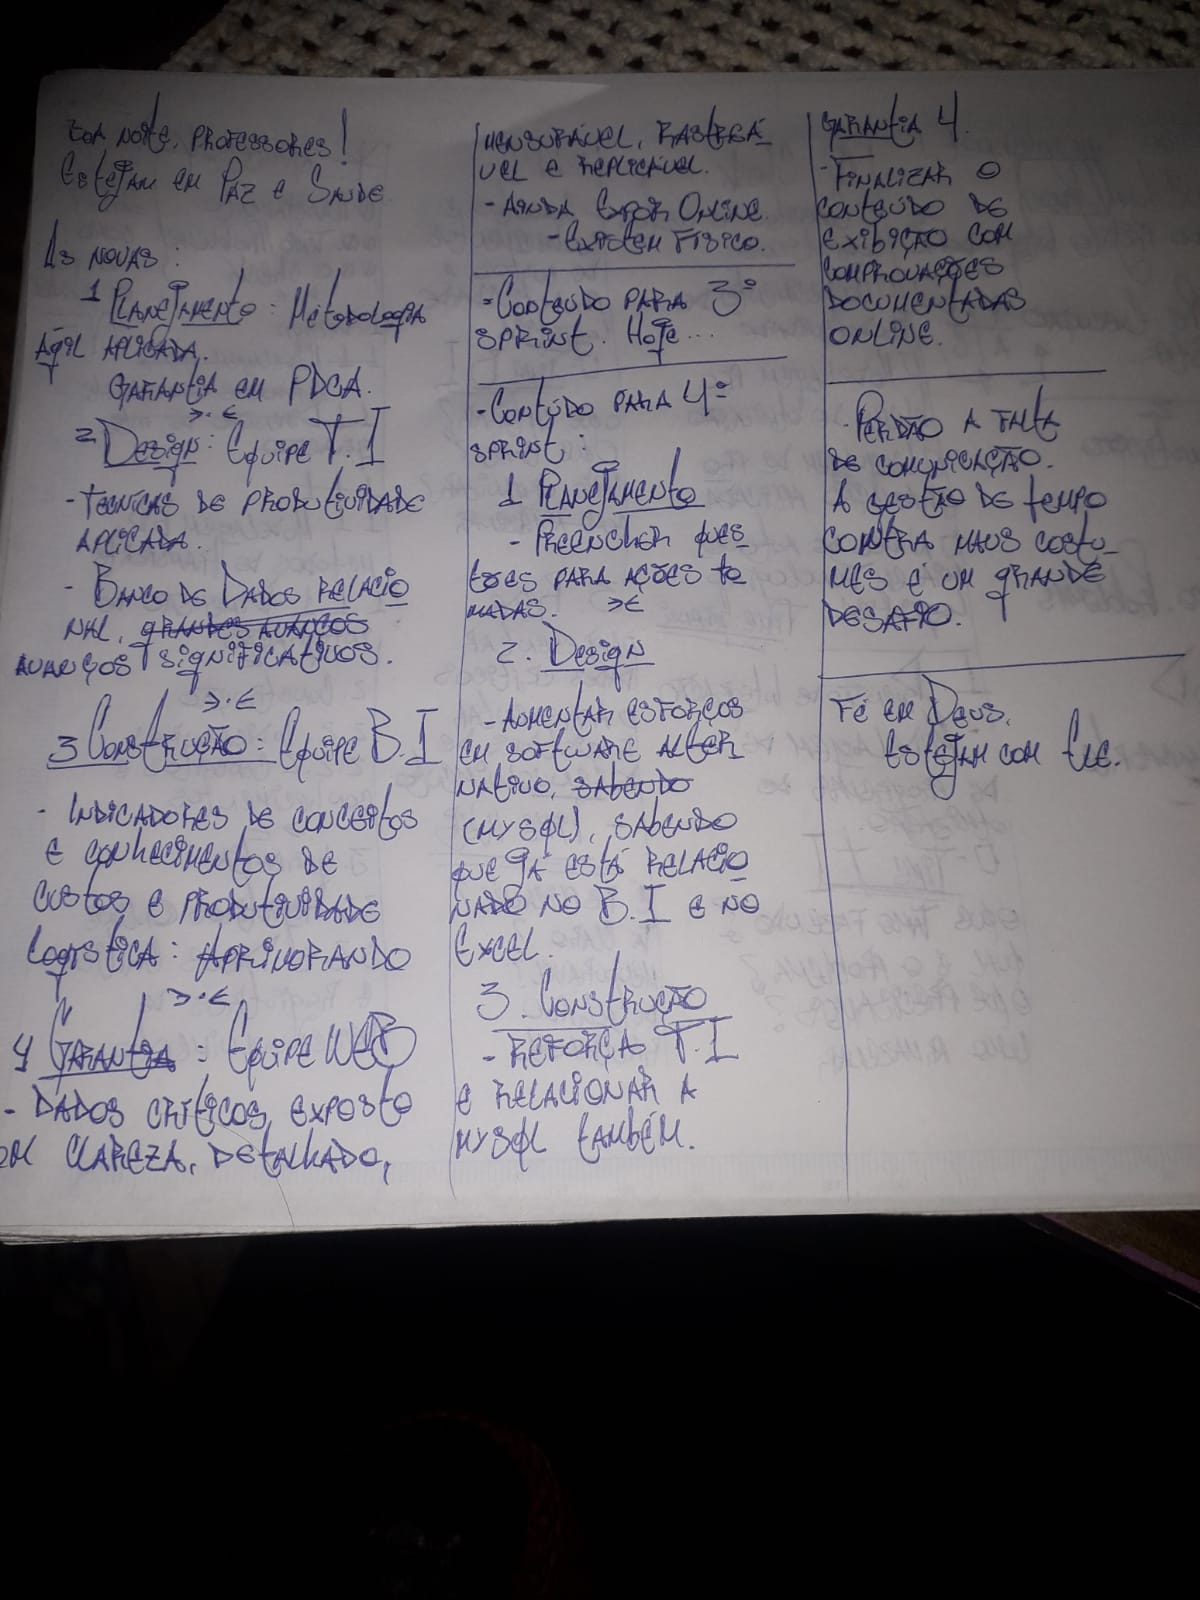 Boa noite, professores!
Estejam em Paz e Saude
As novas:
1 Planejamento: Métodologia
Ágil aplicada.
Garantia em PDCA.
>.<
2 Design: Equipe T.I
- Tecnicas de produtividade
aplicada.
- Banco de Dados relacio
nal, grandes avanços
avanços significativos.
>.<
3 Construção: Equipe B.I
- Indicadores de conceitos
e conhecimentos de
custos e produtividade
Logística: Aprimorando
>.<
4 Garantia: Equipe WEB
- Dados críticos, exposto
em clareza, detalhado,
mensurável, rastreá
vel e replicável.
- Ainda expor Online.
- Existem físico.
- Conteudo para 3º
sprint. Hoje...
- Contúdo para 4º
sprint:
1 Planejamento
- Preencher ques
tões para ações to
madas. >.<
2. Design
- Aumentar esforços
em software alter
nativo, sabendo
(MySQL), sabendo
que já está relacio
nado no B.I e no
Excel.
3. Construção
- Reforça T.I
e relacionar a
MySQL também.
Garantia 4.
- Finalizar o
conteúdo de
exibição com
comprovações
documentadas
online.
- Perdão a falta
de comunicação.
A gestão de tempo
contra maus costu_
mes é um grande
desafio.
Fé em Deus.
Estejam com Ele.